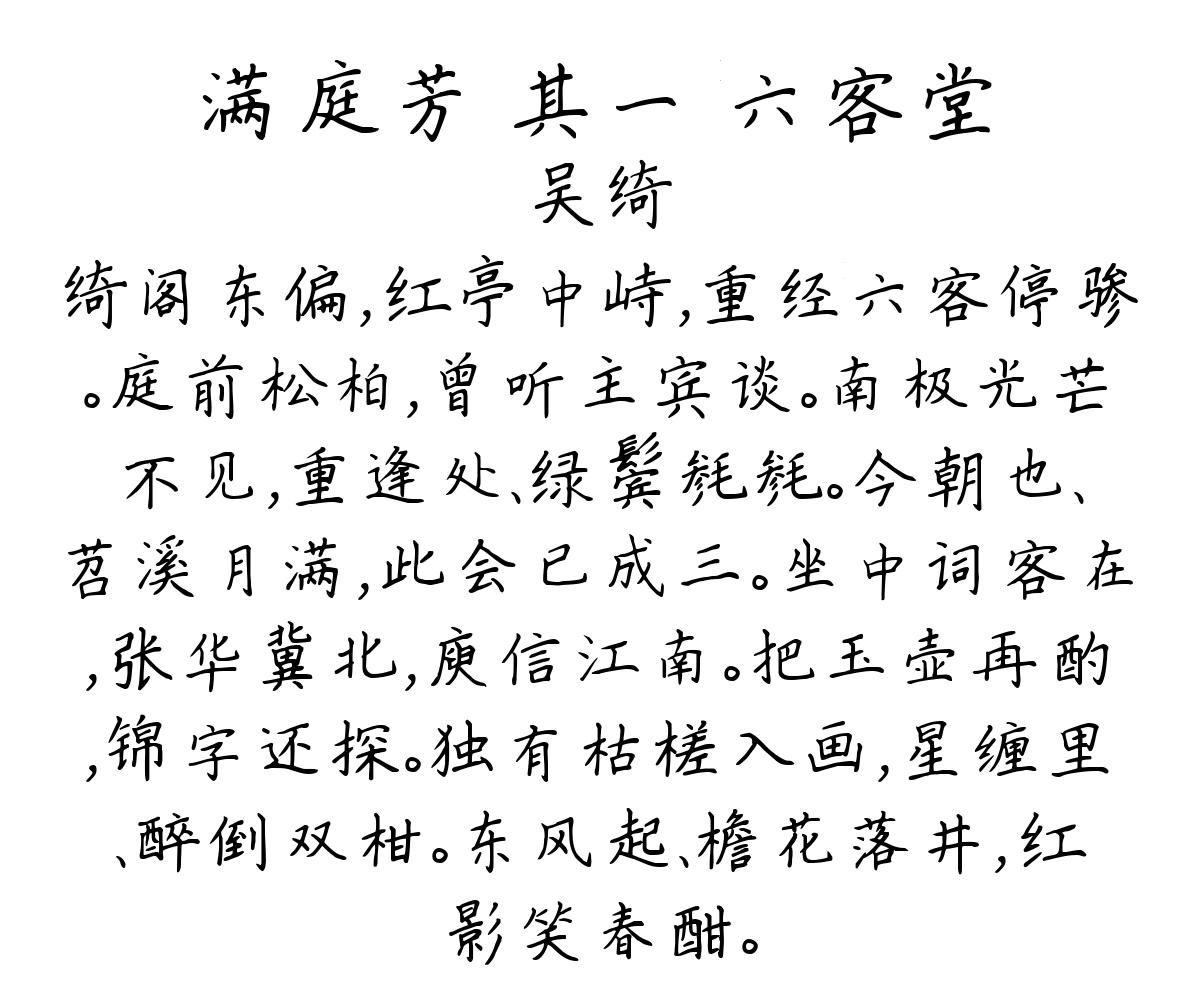 满庭芳 其一 六客堂
吴绮
绮阁东偏,红亭中峙,重经六客停骖
。庭前松柏,曾听主宾谈。南极光芒
不见,重逢处、绿鬓毵毵。今朝也、
苕溪月满,此会已成三。坐中词客在
,张华冀北,庾信江南。把玉壶再酌
,锦字还探。独有枯槎入画,星缠里
、醉倒双柑。东风起、檐花落井,红
影笑春酣。